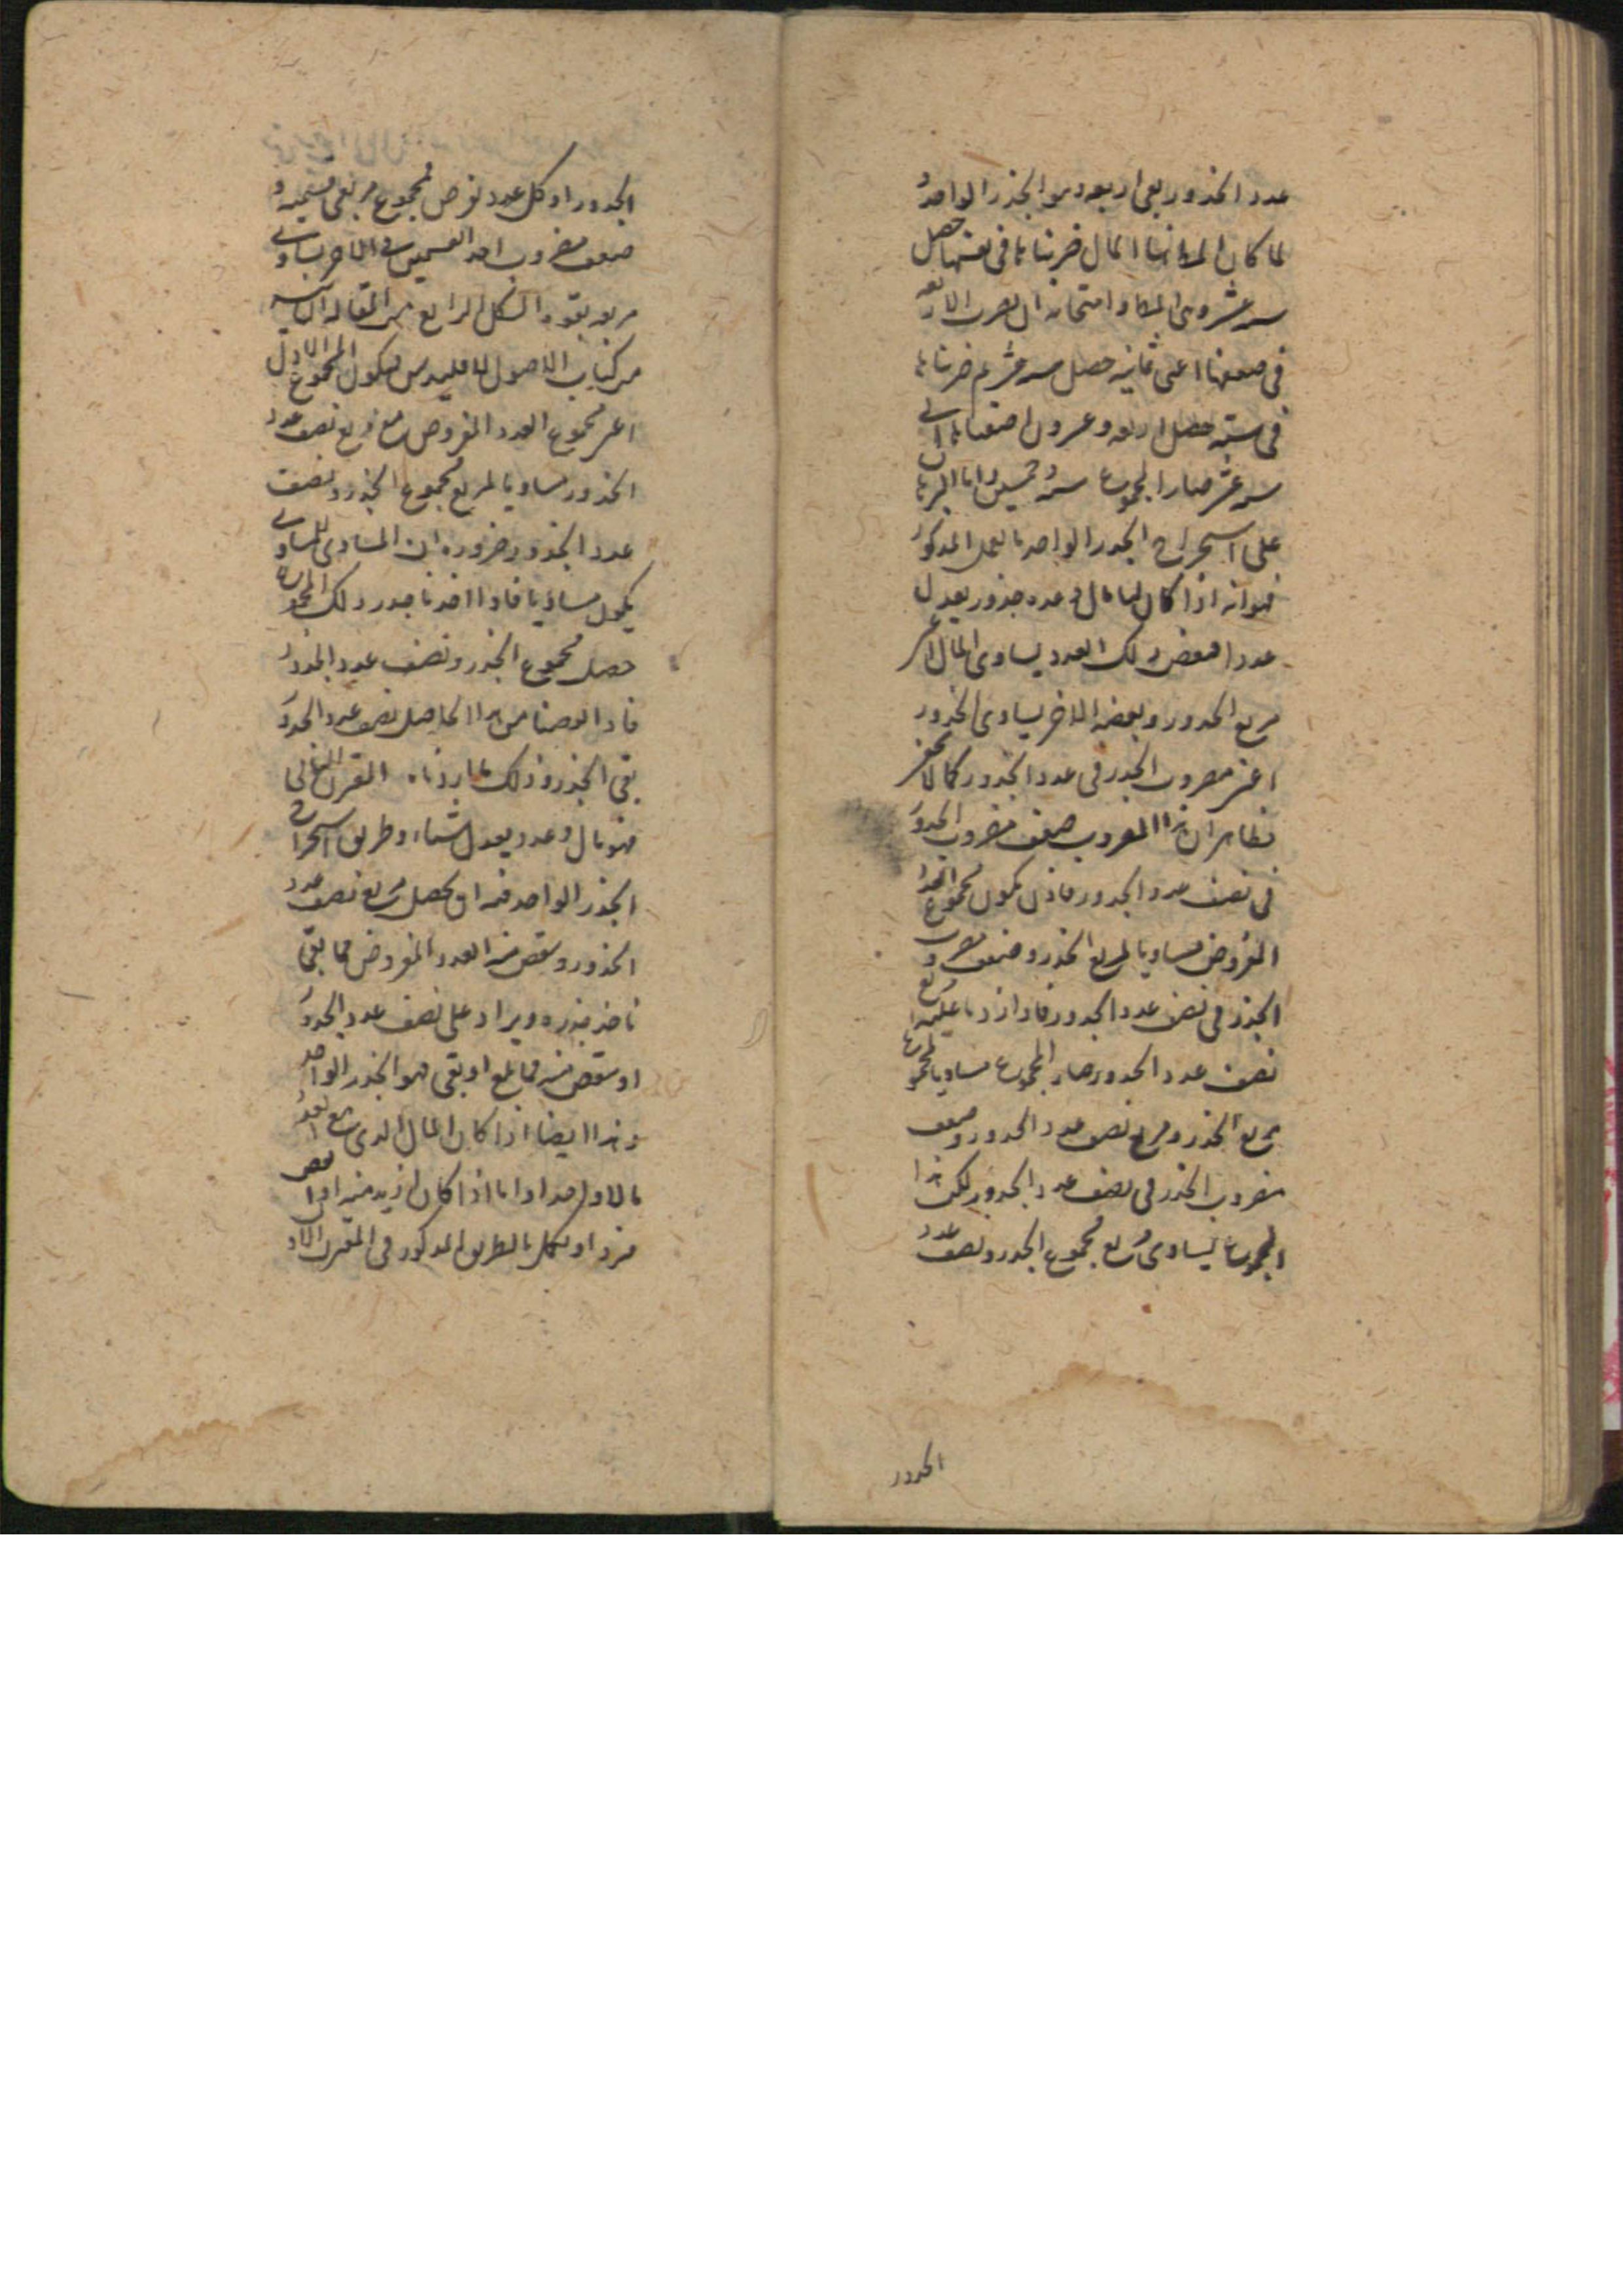 عدد الجذور بقی اربعه هو الجذر الواحد و
لما کان المطلوب هنا المال ضربناها فی نفسها حصل
سته عشر وهی المال وامتحانه ان یضرب الاربعه
فی ضعفها اعنی ثمانیه حصل ثم ضربناها
فی سته حصل اربعه وعشرون اضفناها الی
سته عشر صار المجموع سته وخمسین واما البرهان
علی استخراج الجذر الواحد بالعمل المذکور
فهو انه اذا کان لنا مال وعدد جذور یعدل
عددا فبعض ذلک العدد یساوی المال اعنی
مربع الجذور وبعضه الاخر یساوی الجذور
اعنی مضروب الجذر فی عدد الجذور کما لا یخفی
فظاهر ان هذا المضروب ضعف مضروب الجذور
فی نصف عدد الجذور فاذن یکون مجموع العدد
المفروض مساویا لمربع الجذر وضعف مضروب
الجذر فی نصف عدد الجذور فاذا زدنا علیه مربع
نصف عدد الجذور صار المجموع مساویا لمجموع
مربع الجذر ومربع نصف عدد الجذور وضعف
مضروب الجذر فی نصف عدد الجذور لکن هذا
المجموع یساوی مربع مجموع الجذر ونصف عدد
الجذور
الجذور اذ کل عدد نفرض فمجموع مربعی قسمیه و
ضعف مضروب احد القسمین فی الاخر یساوی
مربعه بقوه الشکل الرابع من المقاله الثانیه
من کتاب الاصول لاقلیدس فیکون المجموع الاول
اعنی مجموع العدد المفروض مع مربع نصف عدد
الجذور مساویا لمربع مجموع الجذر ونصف
عدد الجذور ضروره ان المساوی للمساوی
یکون مساویا فاذا اخذنا جذر ذلک المجموع
حصل مجموع الجذر ونصف عدد الجذور
فاذا نقصنا من هذا الحاصل نصف عدد الجذور
بقی الجذر وذلک ما اردناه المقترن الثانی
فهو مال وعدد یعدل اشیاء وطریق استخراج
الجذر الواحد فیه ان یحصل مربع نصف عدد
الجذور وینقص منه العدد المفروض فما بقی
ناخذ جذره ویزاد علی نصف عدد الجذور
او ینقص منه فما بلغ او بقی فهو الجذر الواحد
وهذا ایضا اذا کان المال الذی مع العدد
مالا واحدا واما اذا کان ازید منه او انقص
فیرد او یکمل بالطریق المذکور فی المقترن الاول